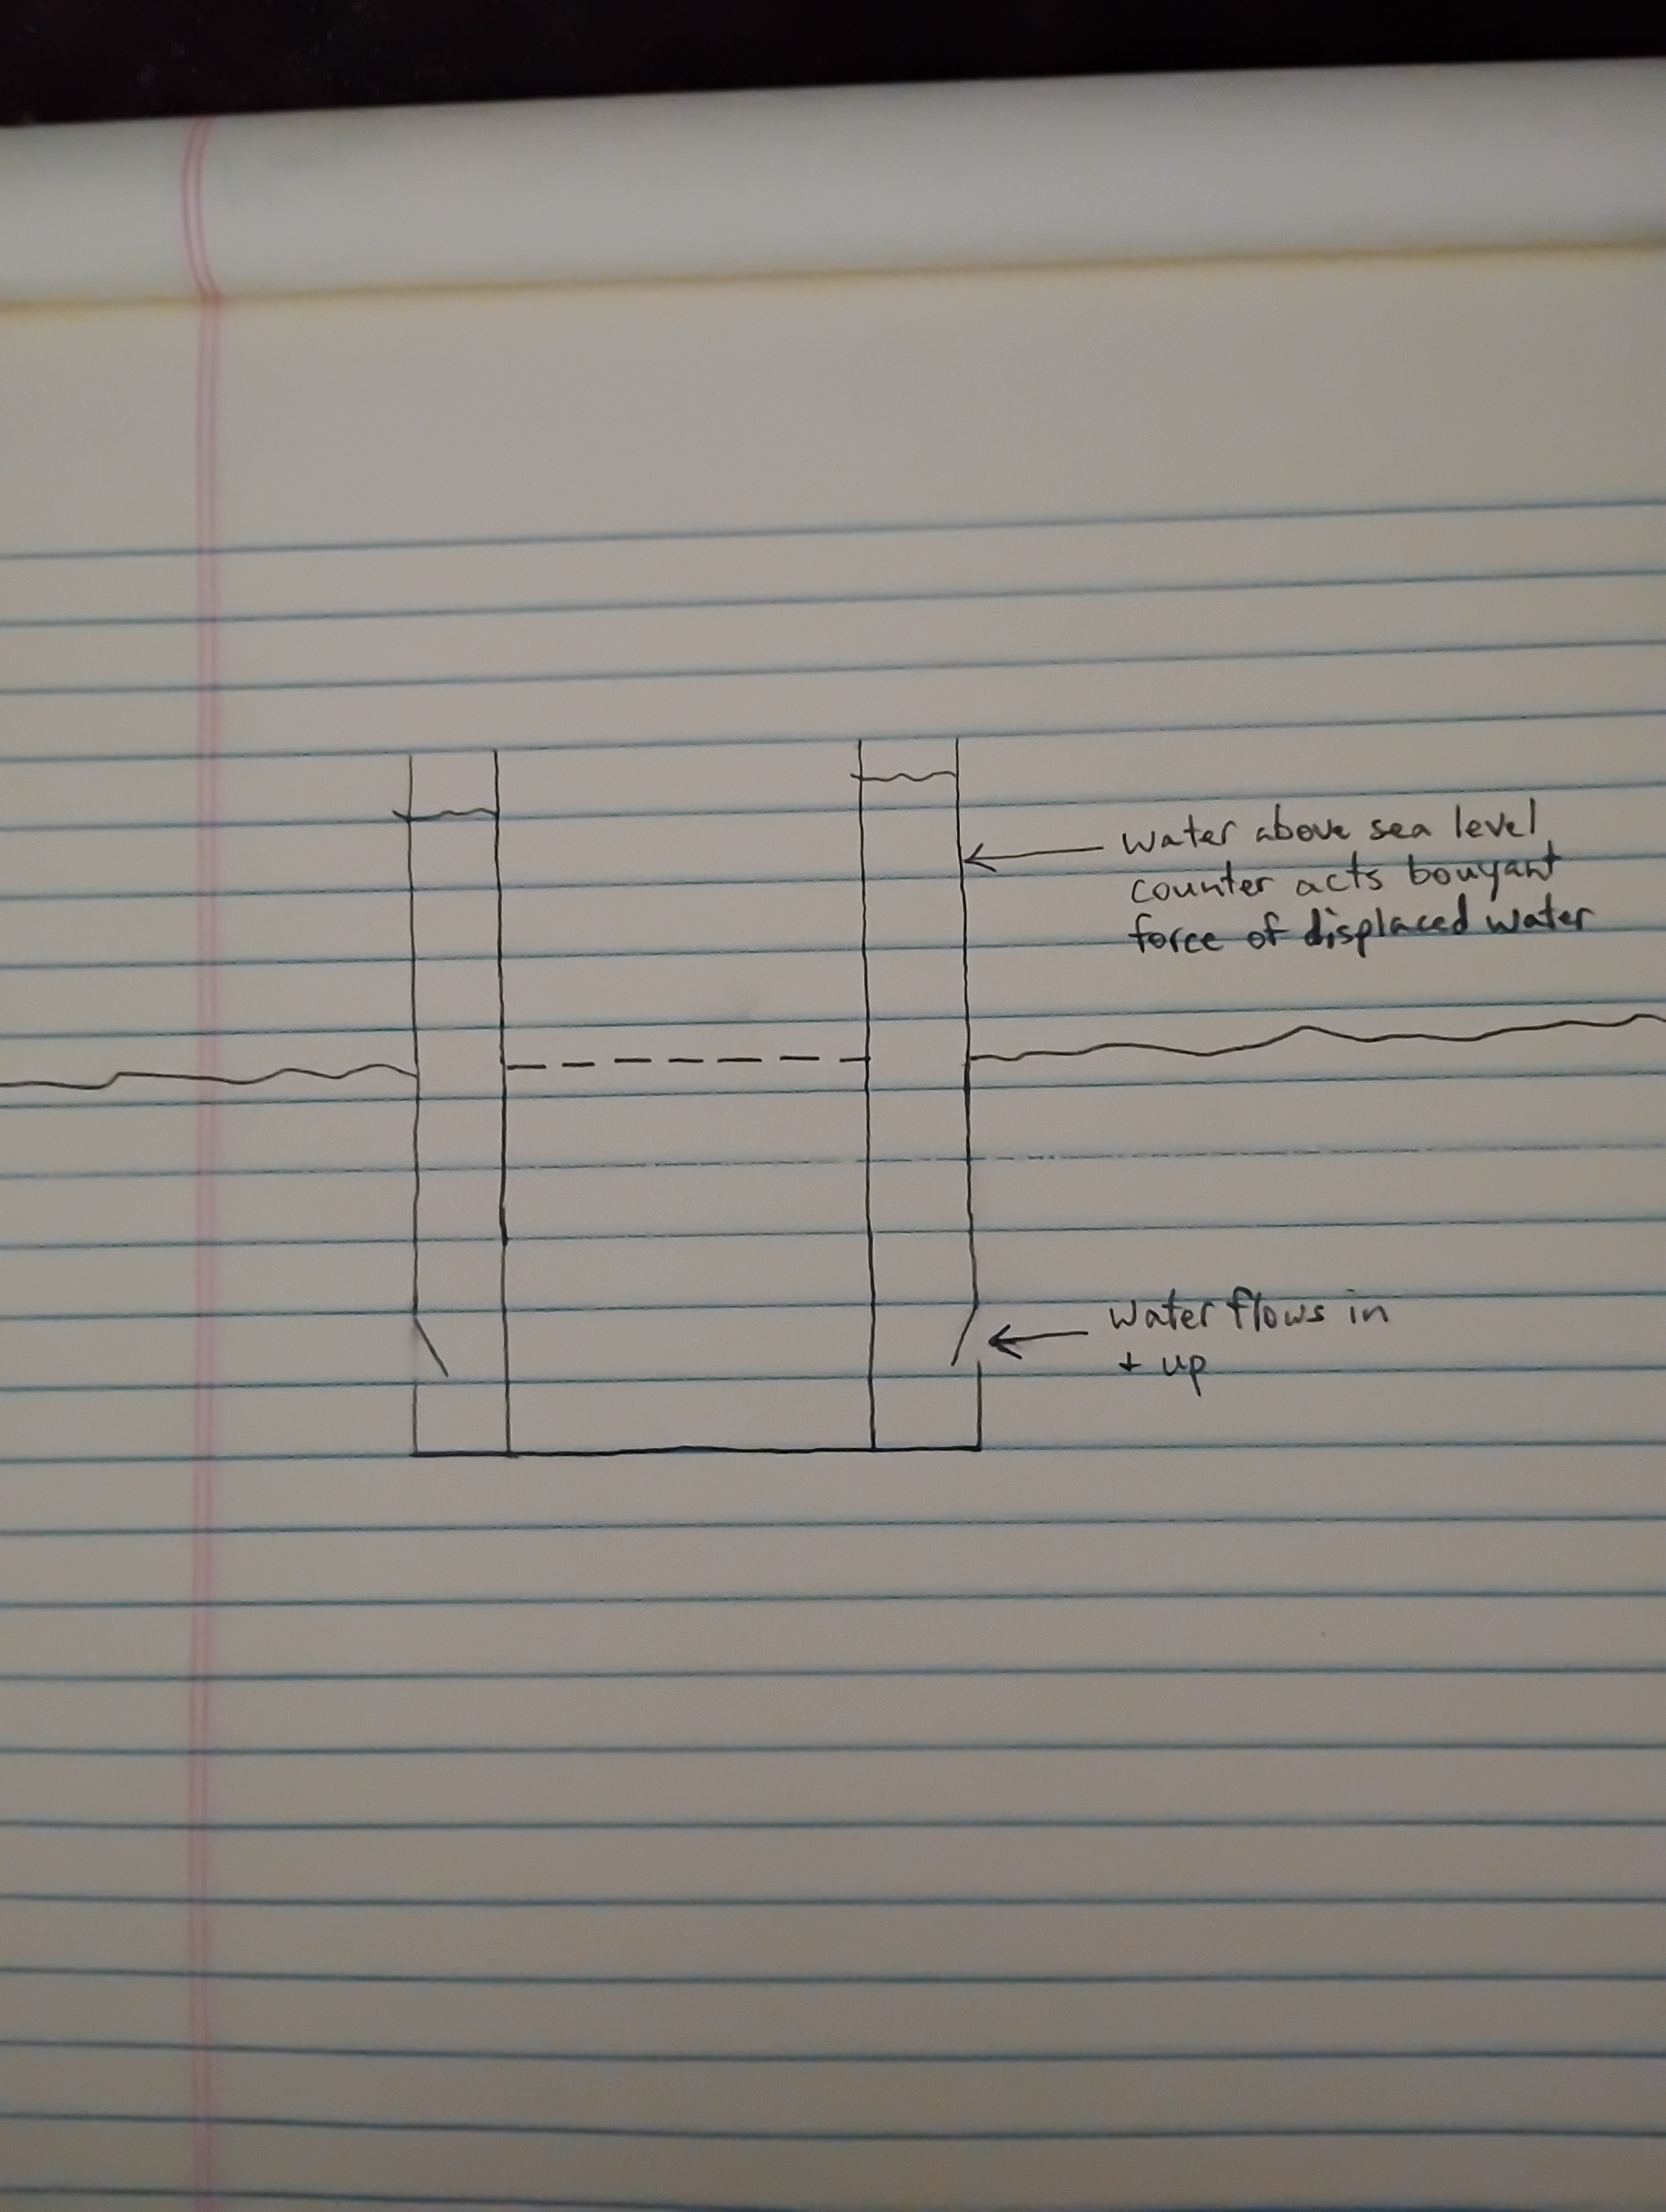 water above sea level
counter acts bouyant
force of displaced water
water flows in
+ up